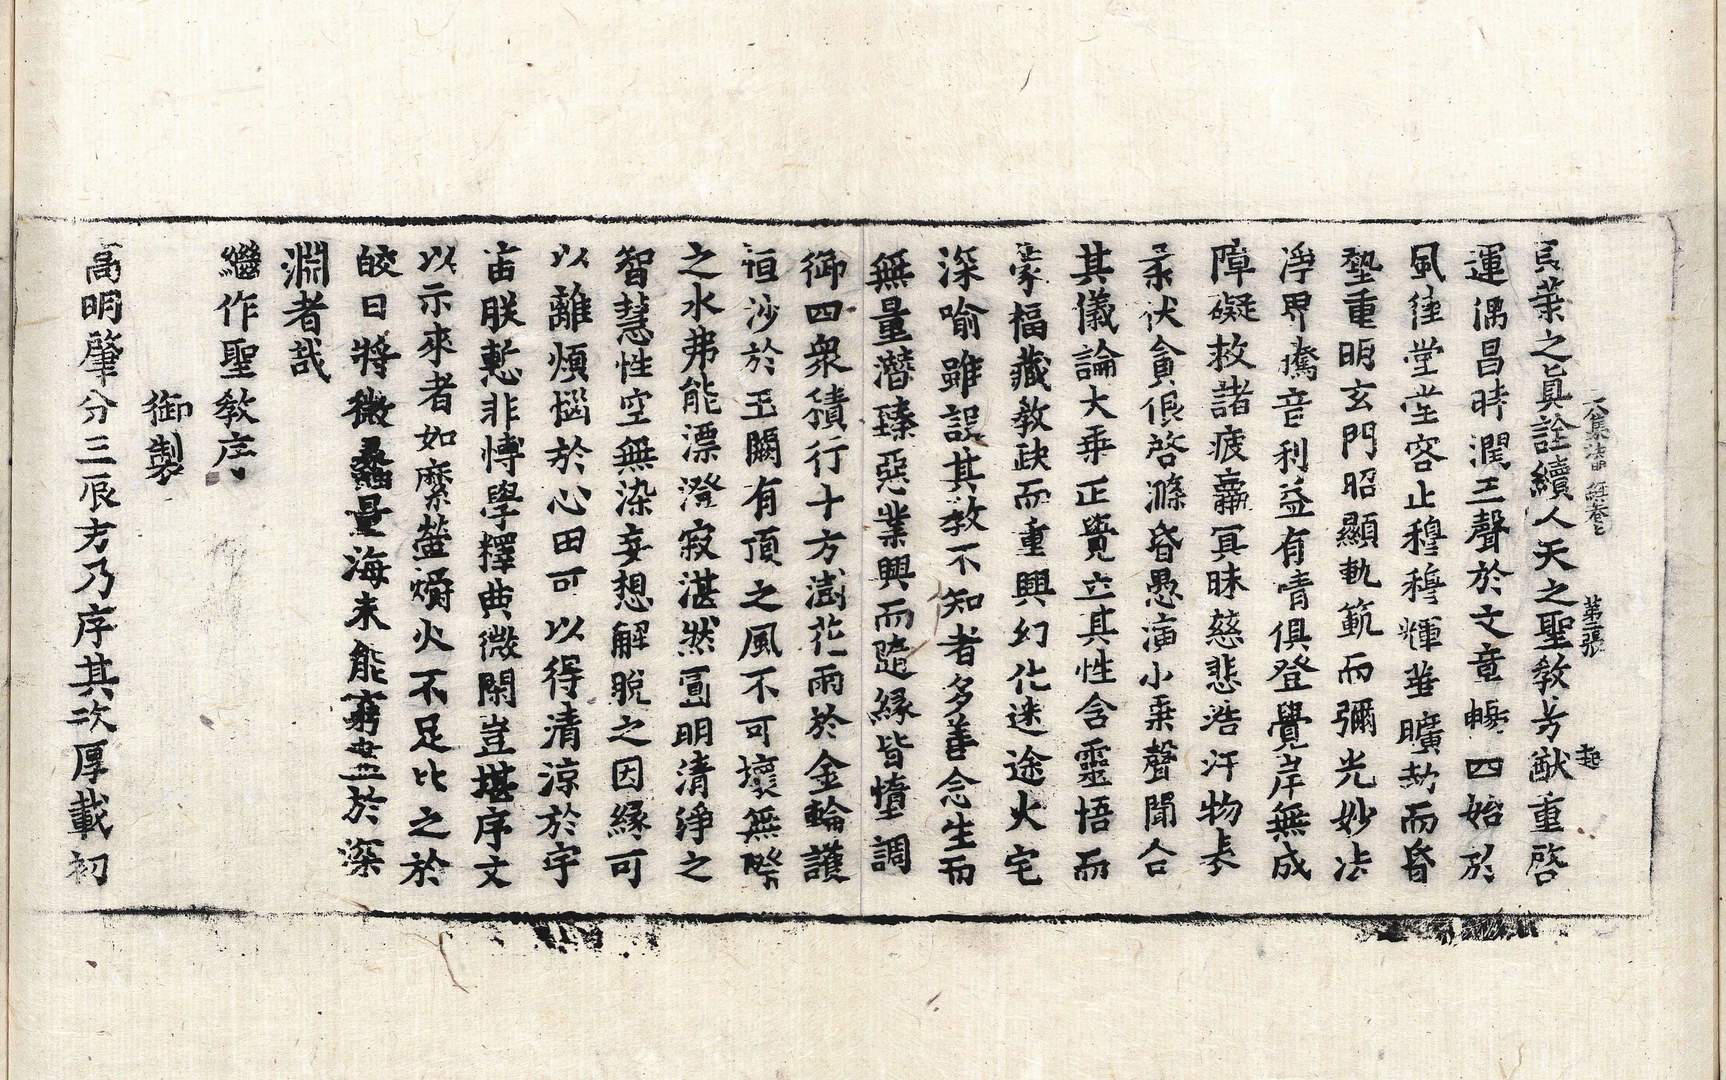 大集法門經卷上 第二張 起
貝葉之眞詮續人天之聖教芳猷重啓
運偶昌時潤五聲於文章暢四始於
風徃堂堂容止穆穆輝華曠劫而昏
墊重明玄門昭顯軌範而彌光妙法
淨界騰音利益有情俱登覺岸無成
障礙救諸疲羸冥昧慈悲浩汗物表
柔伏貪佷啓滌昏愚演小乘聲聞合
其儀論大乘正覺立其性含靈悟而
蒙福藏教缺而重興幻化迷途火宅
深喻雖設其教不知者多善念生而
無量潛臻惡業興而隨緣皆墮調
御四衆積行十方澍花雨於金輪護
恒沙於玉闕有頂之風不可壞無際
之水弗能漂澄寂湛然圓明清淨之
智慧性空無染妄想解脫之因緣可
以離煩惱於心田可以得清涼於宇
宙朕慙非博學釋典微閑豈堪序文
以示來者如縻螢爝火不足比之於
皎日將微蠡量海未能窮盡於深
淵者哉
繼作聖教序
御製
高明肇分三辰方乃序其次厚載初